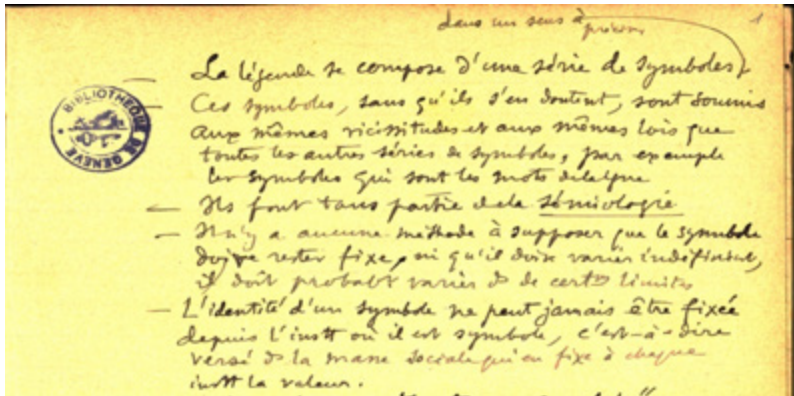 dans un sens à
préciser
1
— La légende se compose d'une série de symboles,
— Ces symboles, sans qu'ils s'en doutent, sont soumis
aux mêmes vicissitudes et aux mêmes lois que
toutes les autres séries de symboles, par exemple
les symboles qui sont les mots de la lgue
— Ils font tous partie de la sémiologie
— Il n'y a aucune méthode à supposer que le symbole
doive rester fixe, ni qu'il doive varier indéfiniment,
il doit probabt varier ds de certnes limites
— L'identité d'un symbole ne peut jamais être fixée
depuis l'instt où il est symbole, c'est-à-dire
versé ds la masse sociale qui en fixe à chaque
instt la valeur.
BIBLIOTHEQUE DE GENEVE